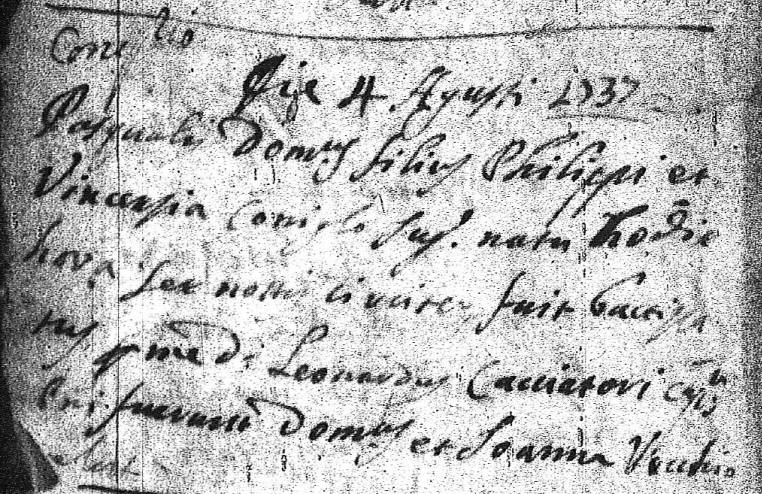 Coniglio
Die 4 Agusti 1737
Pasqualis Domus filius Philippi et
Vincensia Coniglo jug. natus hodie
hora sex noctis circiter fuit bactiza
tus p me D. Leonardus Cacciatori
fuerunt Domus et Joanna Vecchio